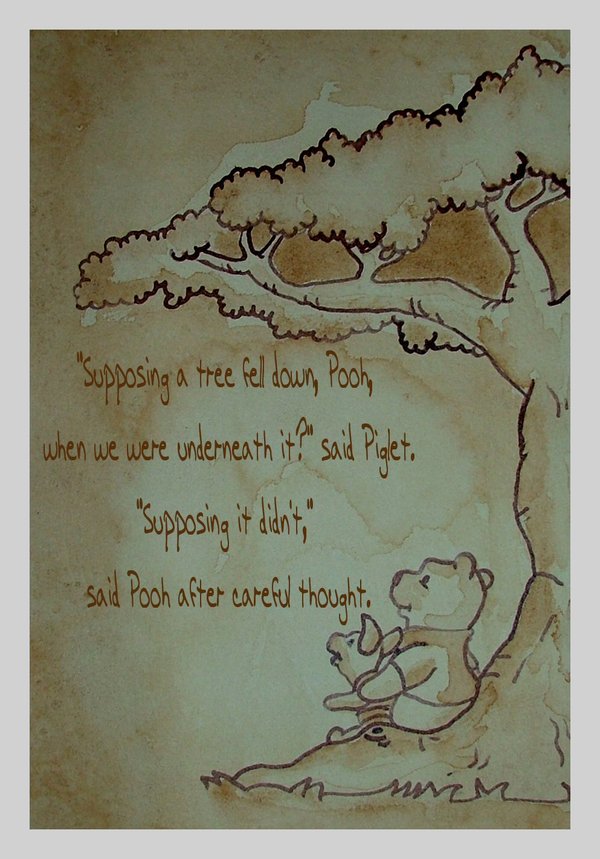 "Supposing a tree fell down, Pooh,
when we were underneath it?" said Piglet.
"Supposing it didn't,"
said Pooh after careful thought.